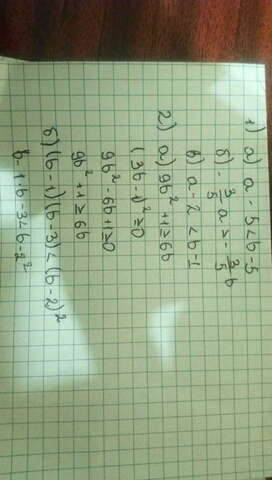 1) а) a - 5 < b - 5
б) - 3/5 a > - 3/5 b
в) a - 2 < b - 1
2) а) 9b² + 1 ≥ 6b
(3b - 1)² ≥ 0
9b² - 6b + 1 ≥ 0
9b² + 1 ≥ 6b
б) (b - 1)(b - 3) < (b - 2)²
b - 1 · b - 3 < b - 2²